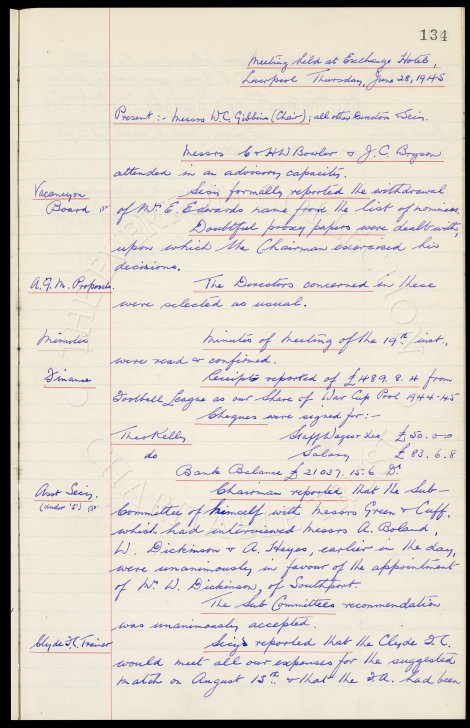 134
Meeting held at Exchange Hotel,
Liverpool Thursday, June 28, 1945
Present :- Messrs W.C. Gibbins (Chair); all other Directors & Secy.
Messrs C & HW Bowler & J.C. Bryson
attended in an advisory capacity.
Vacancy on
Board
Secy formally reported the withdrawal
of Mr E. Edwards name from the list of nominees.
Doubtful proxy papers were dealt with,
upon which the Chairman exercised his
decisions.
A.G.M. Proposals.
The Directors concerned in these
were selected as usual.
Minutes
Minutes of Meeting of the 19th inst.
were read & confirmed.
Finance
Receipts reported of £489. 8. 4 from
Football League as our Share of War Cup Pool 1944-45
Cheques were signed for:-
Theo Kelly Staff Wages &c £50.0.0
do Salary £83.6.8
Bank Balance £21037.15.6 Dr.
Asst Secy.
(under '5')
Chairman reported that the Sub-
Committee of himself with Messrs Green & Cuff,
which had interviewed Messrs A. Boland,
W. Dickinson & A. Heyes, earlier in the day,
were unanimously in favour of the appointment
of Mr W. Dickinson, of Southport.
The Sub Committees recommendation
was unanimously accepted.
Clyde F.C. Trainer
Secy reported that the Clyde F.C.
would meet all our expenses for the suggested
match on August 15th & that the F.A. had been